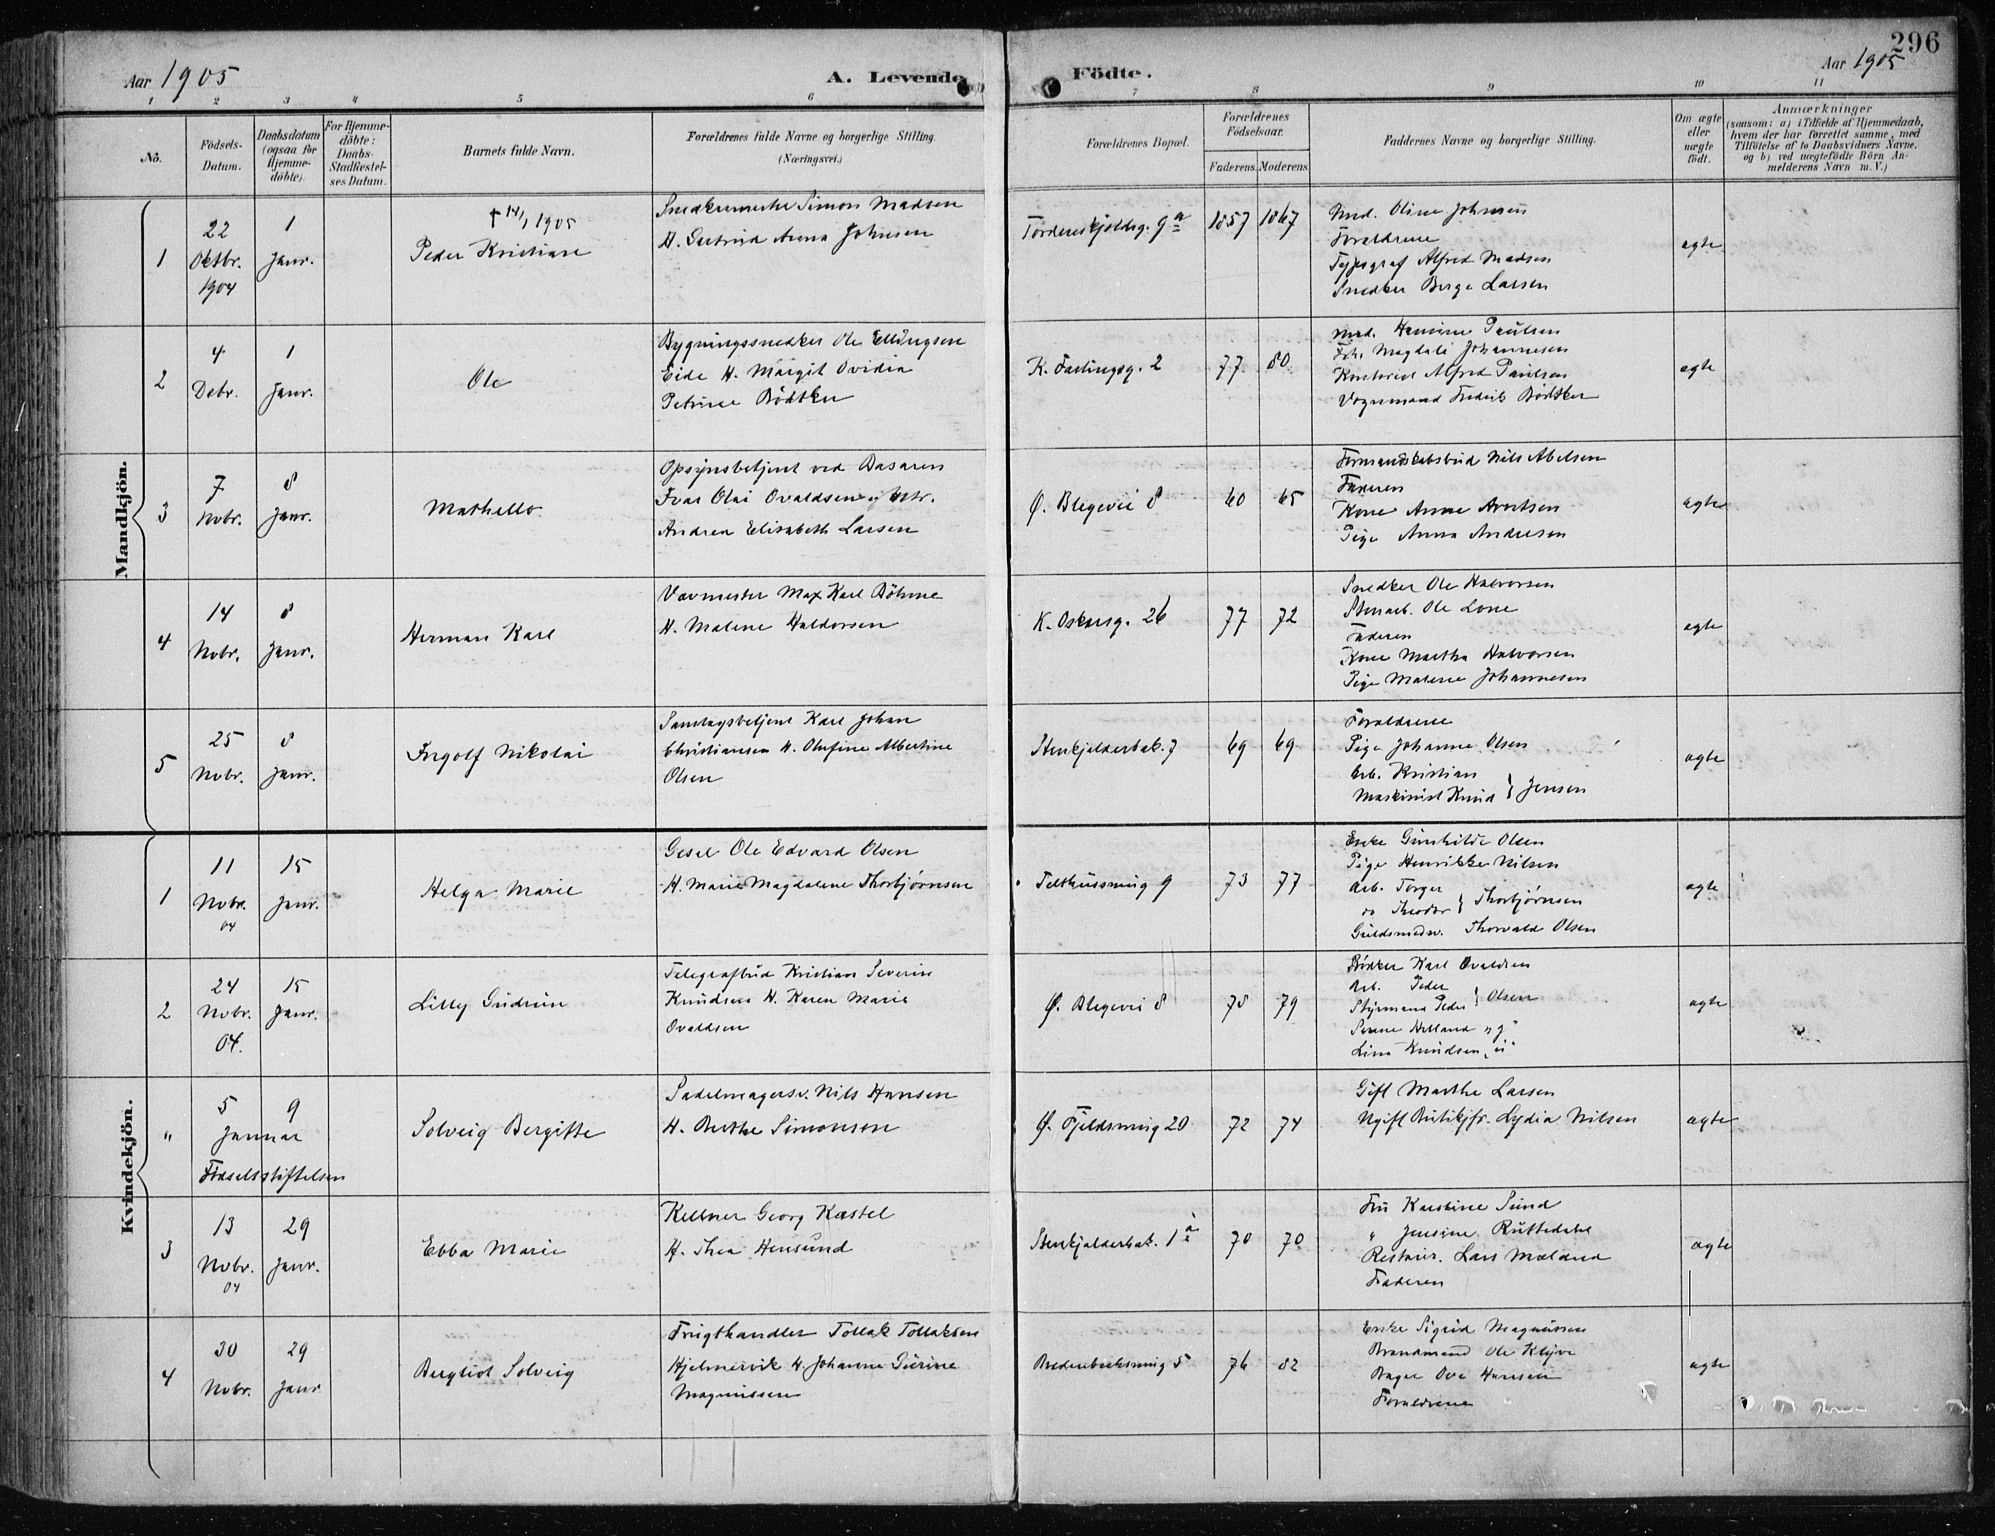 296
Aar 1905
A. Levende Födte.
Aar 1905
1 2 3 4 5 6 7 8 9 10 11
No.
Födsels-Datum.
Daabsdatum (ogsaa for Hjemme-döbte).
For Hjemme-döbte: Daabs-Stadfæstel-ses Datum.
Barnets fulde Navn.
Forældrenes fulde Navne og borgerlige Stilling. (Næringsvei.)
Forældrenes Bopæl.
Forældrenes Födselsaar.
Faderens. Moderens.
Faddernes Navne og borgerlige Stilling.
Om ægte eller uægte födt.
Anmærkninger
(saasom: a) i Tilfælde af Hjemmedaab,
hvem der har forrettet samme, med
Tilföielse af to Daabsvidners Navne.
og b) ved uægtefödte Börn An-
melderens Navn m. V.)
Mandkjön.
1
22 Oktbr. 1904
1 Janr.
† 14/1 1905
Peder Kristian
Simon Madsen
H. Gertrud Anna Johnsen
Tordenskjoldsg. 9 a
1857 1867
Mad. Oline Johnsen
Forældrene
Typograf Alfred Madsen
Snedker Berge Larsen
ægte
2
4 Debr.
1 Janr.
Ole
Bygningssnedker Ole Ellingsen
Eide H. Margit Ovidia
Petrine Bödtker
K. Fastingsg. 2
77 80
Mad. Paulsen
Magdali Johannesen
Kontorist Alfred Paulsen
Vognmand Fredrik Bödtker
ægte
3
7 Nobr.
8 Janr.
Mathello
Opsynsbetjent ved Basaren
Ivar Olai Ovaldsen og Hstr.
Andrea Elisabeth Larsen
Ø. Blegevei 8
60 65
Formandskabsbud Nils Abelsen
Faderen
Kone Anne Arntsen
Pige Anna Andresen
ægte
4
14 Nobr.
8 Janr.
Herman Karl
Vævmester Max Karl Böhme
H. Malene Haldorsen
K. Oskarsg. 26
77 72
Snedker Ole Halvorsen
Stenarb. Ole Lone
Faderen
Kone Martha Halvorsen
Pige Malene Johannesen
ægte
5
25 Nobr.
8 Janr.
Ingolf Nikolai
Karl Johan
Christiansen H. Olufine Albertine
Olsen
Stenkjelderbak. 7
69 69
Forældrene
Pige Johanne Olsen
Arb. Kristian
Maskinist Knud } Jensen
ægte
Kvindekjön.
1
11 Nobr. 04
15 Janr.
Helga Marie
Gesel Ole Edvard Olsen
H. Marie Magdalene Thorbjørnsen
Telthussmug 9
73 77
Enke Gunhilde Olsen
Pige Henrikke Nilsen
Arb. Torger
do Theodor } Thorbjørnsen
Guldsmedsv. Thorvald Olsen
ægte
2
24 Nobr. 04.
15 Janr.
Lilly Gudrun
Telegrafbud Kristian Severin
Knudsen H. Karen Marie
Ovaldsen
Ø. Blegevei 8
78 79
Bödker Karl Ovaldsen
Arb. Peder
Styrmand Peder } Olsen
Helland "g"
Lina Knudsen "u"
ægte
"
5 9
Januar
Födselsstiftelsen
Solveig Bergitte
Sadelmagersv. Nils Hansen
H. Berthe Simonsen
Ø. Fjeldsmug 20
72 74
Gift Marthe Larsen
Ugift Butikjfr. Lydia Nilsen
ægte
3
13 Nobr. 04
29 Janr.
Ebba Marie
Kellner Georg Kastel
H. Thea Hensund
Stenkjelderbak. 1 a
70 70
Fru Karstine Sund
" Jensine Ruttedahl
Restaur. Lars Mæland
Faderen
ægte
4
30 Nobr.
29 Janr
Bergliot Solveig
Frugthandler Tollak Tollaksen
Hjelmervik H. Johanne Surine
Magnussen
Bredenbecksmug 5
76 82
Enke Sigrid Magnussen
Brandmand Ole Klyve
Bager Ove Hansen
Forældrene
ægte